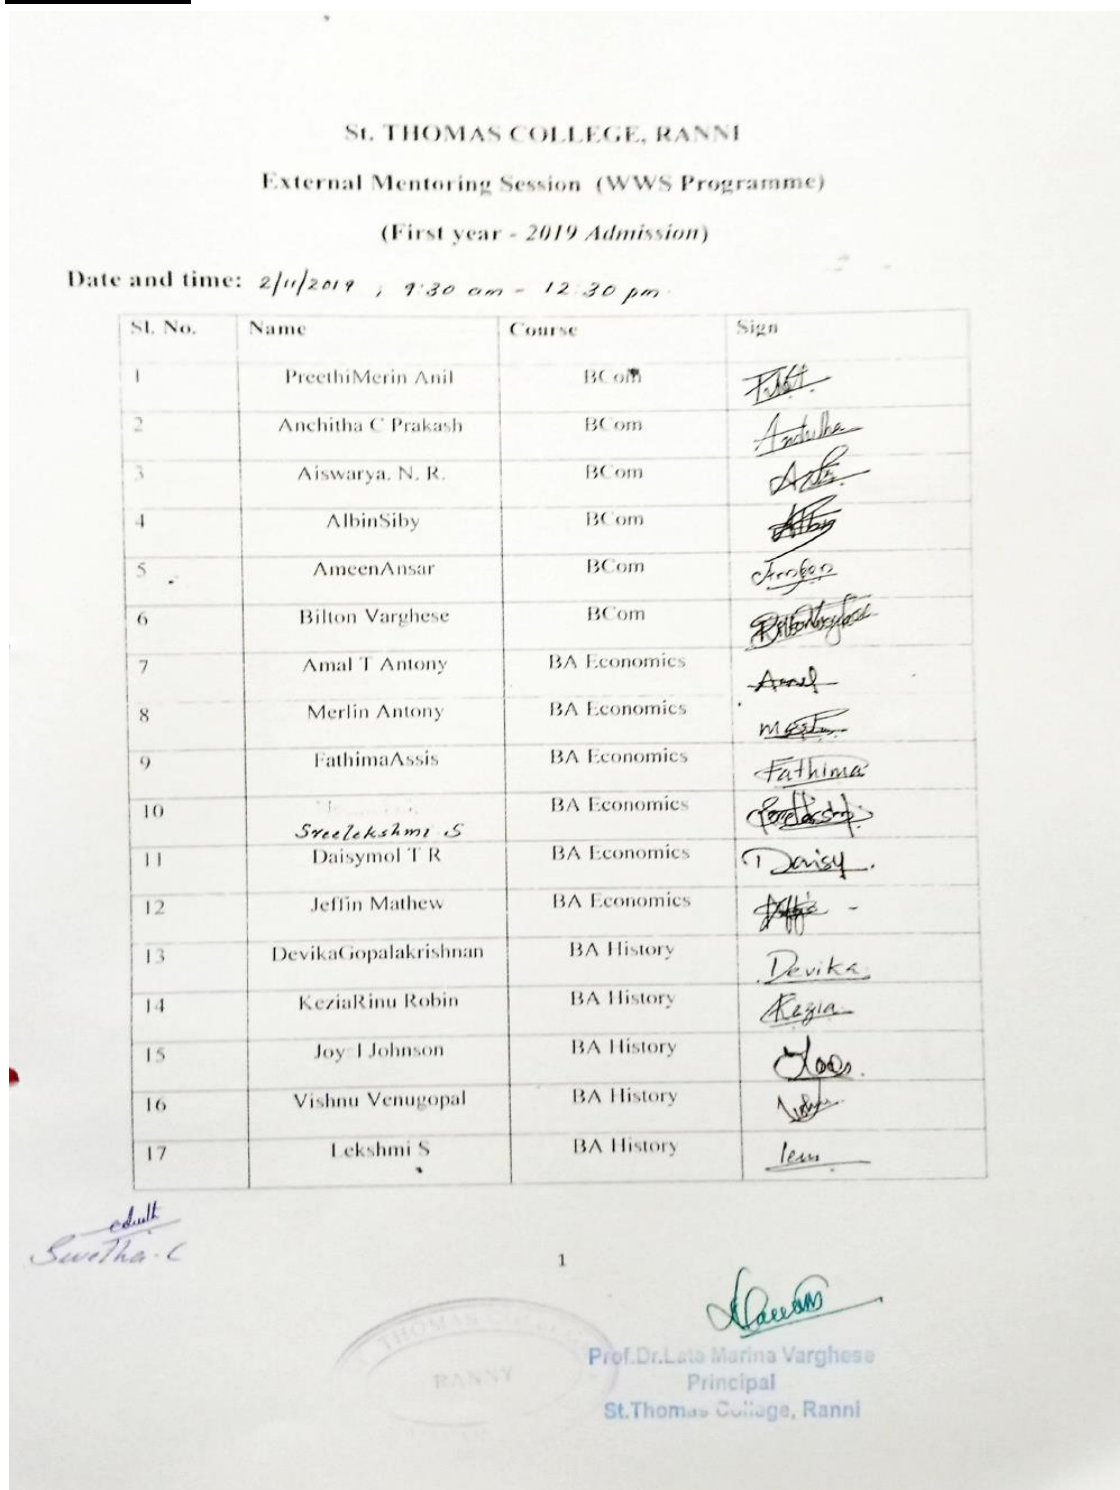 St. THOMAS COLLEGE, RANNI
External Mentoring Session (WWS Programme)
(First year - 2019 Admission)
Date and time: 2/11/2019 , 9:30 am - 12:30 pm.
Sl. No. Name Course Sign
1 PreethiMerin Anil BCom
2 Anchitha C Prakash BCom
3 Aiswarya. N. R. BCom
4 AlbinSiby BCom
5 AmeenAnsar BCom
6 Bilton Varghese BCom
7 Amal T Antony BA Economics Amal
8 Merlin Antony BA Economics
9 FathimaAssis BA Economics Fathima
10 Sreelekshmi S BA Economics
11 Daisymol T R BA Economics Daisy.
12 Jeffin Mathew BA Economics
13 DevikaGopalakrishnan BA History Devika
14 KeziaRinu Robin BA History Kezia
15 Joy I Johnson BA History
16 Vishnu Venugopal BA History
17 Lekshmi S BA History
Swetha. C
1
THOMAS COLLEGE
RANNY
Prof.Dr.Lata Marina Varghese
Principal
St.Thomas College, Ranni